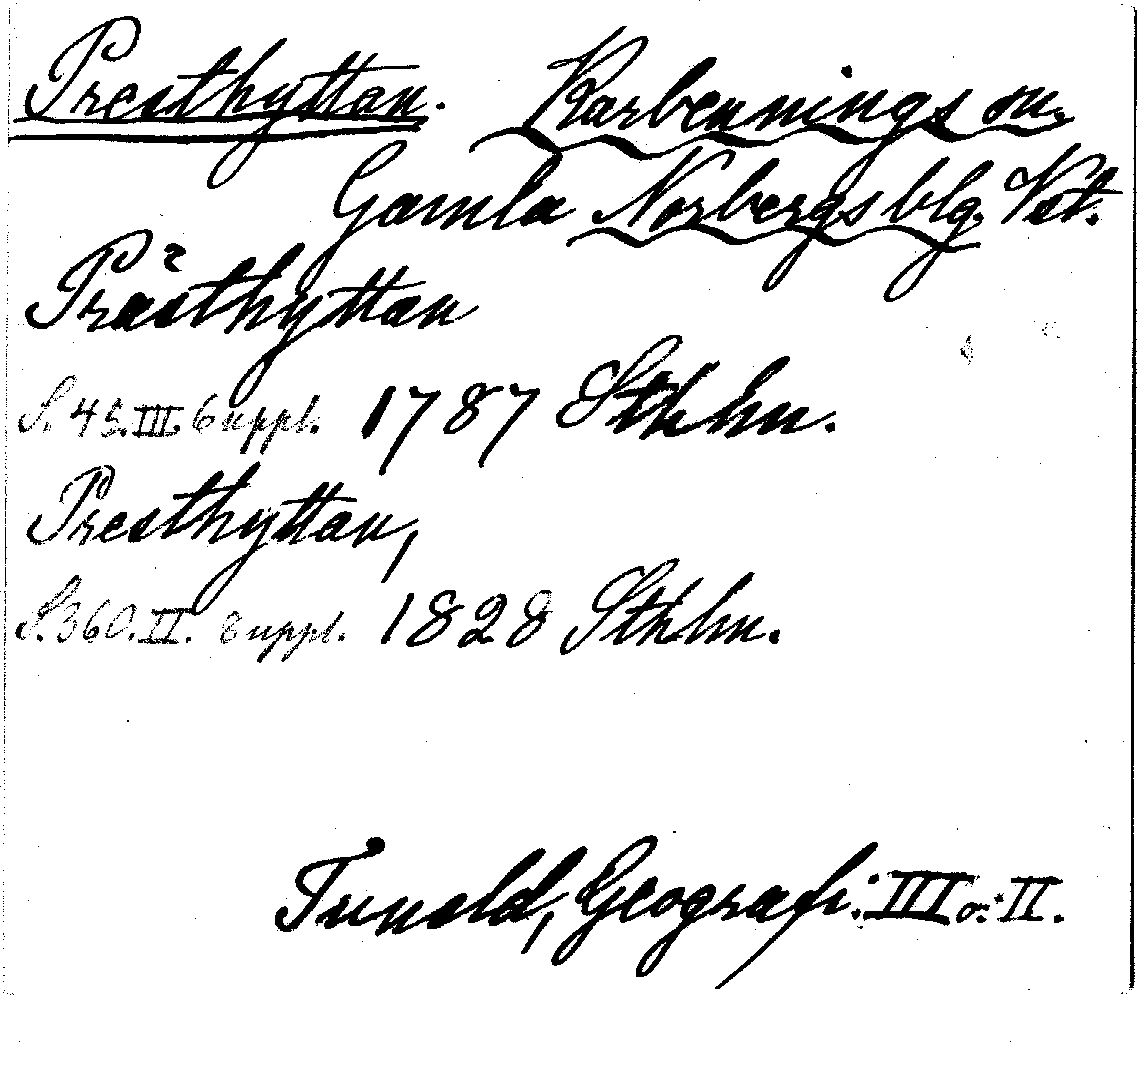 Presthyttan. Karbennings sn.
Gamla Norbergs blg. Vst.
Prästhyttan
S. 45. III. 6 uppl. 1787 Sthlm.
Presthyttan,
S. 360. II. 8 uppl. 1828 Sthlm.
Tuneld, Geografi. III o. II.